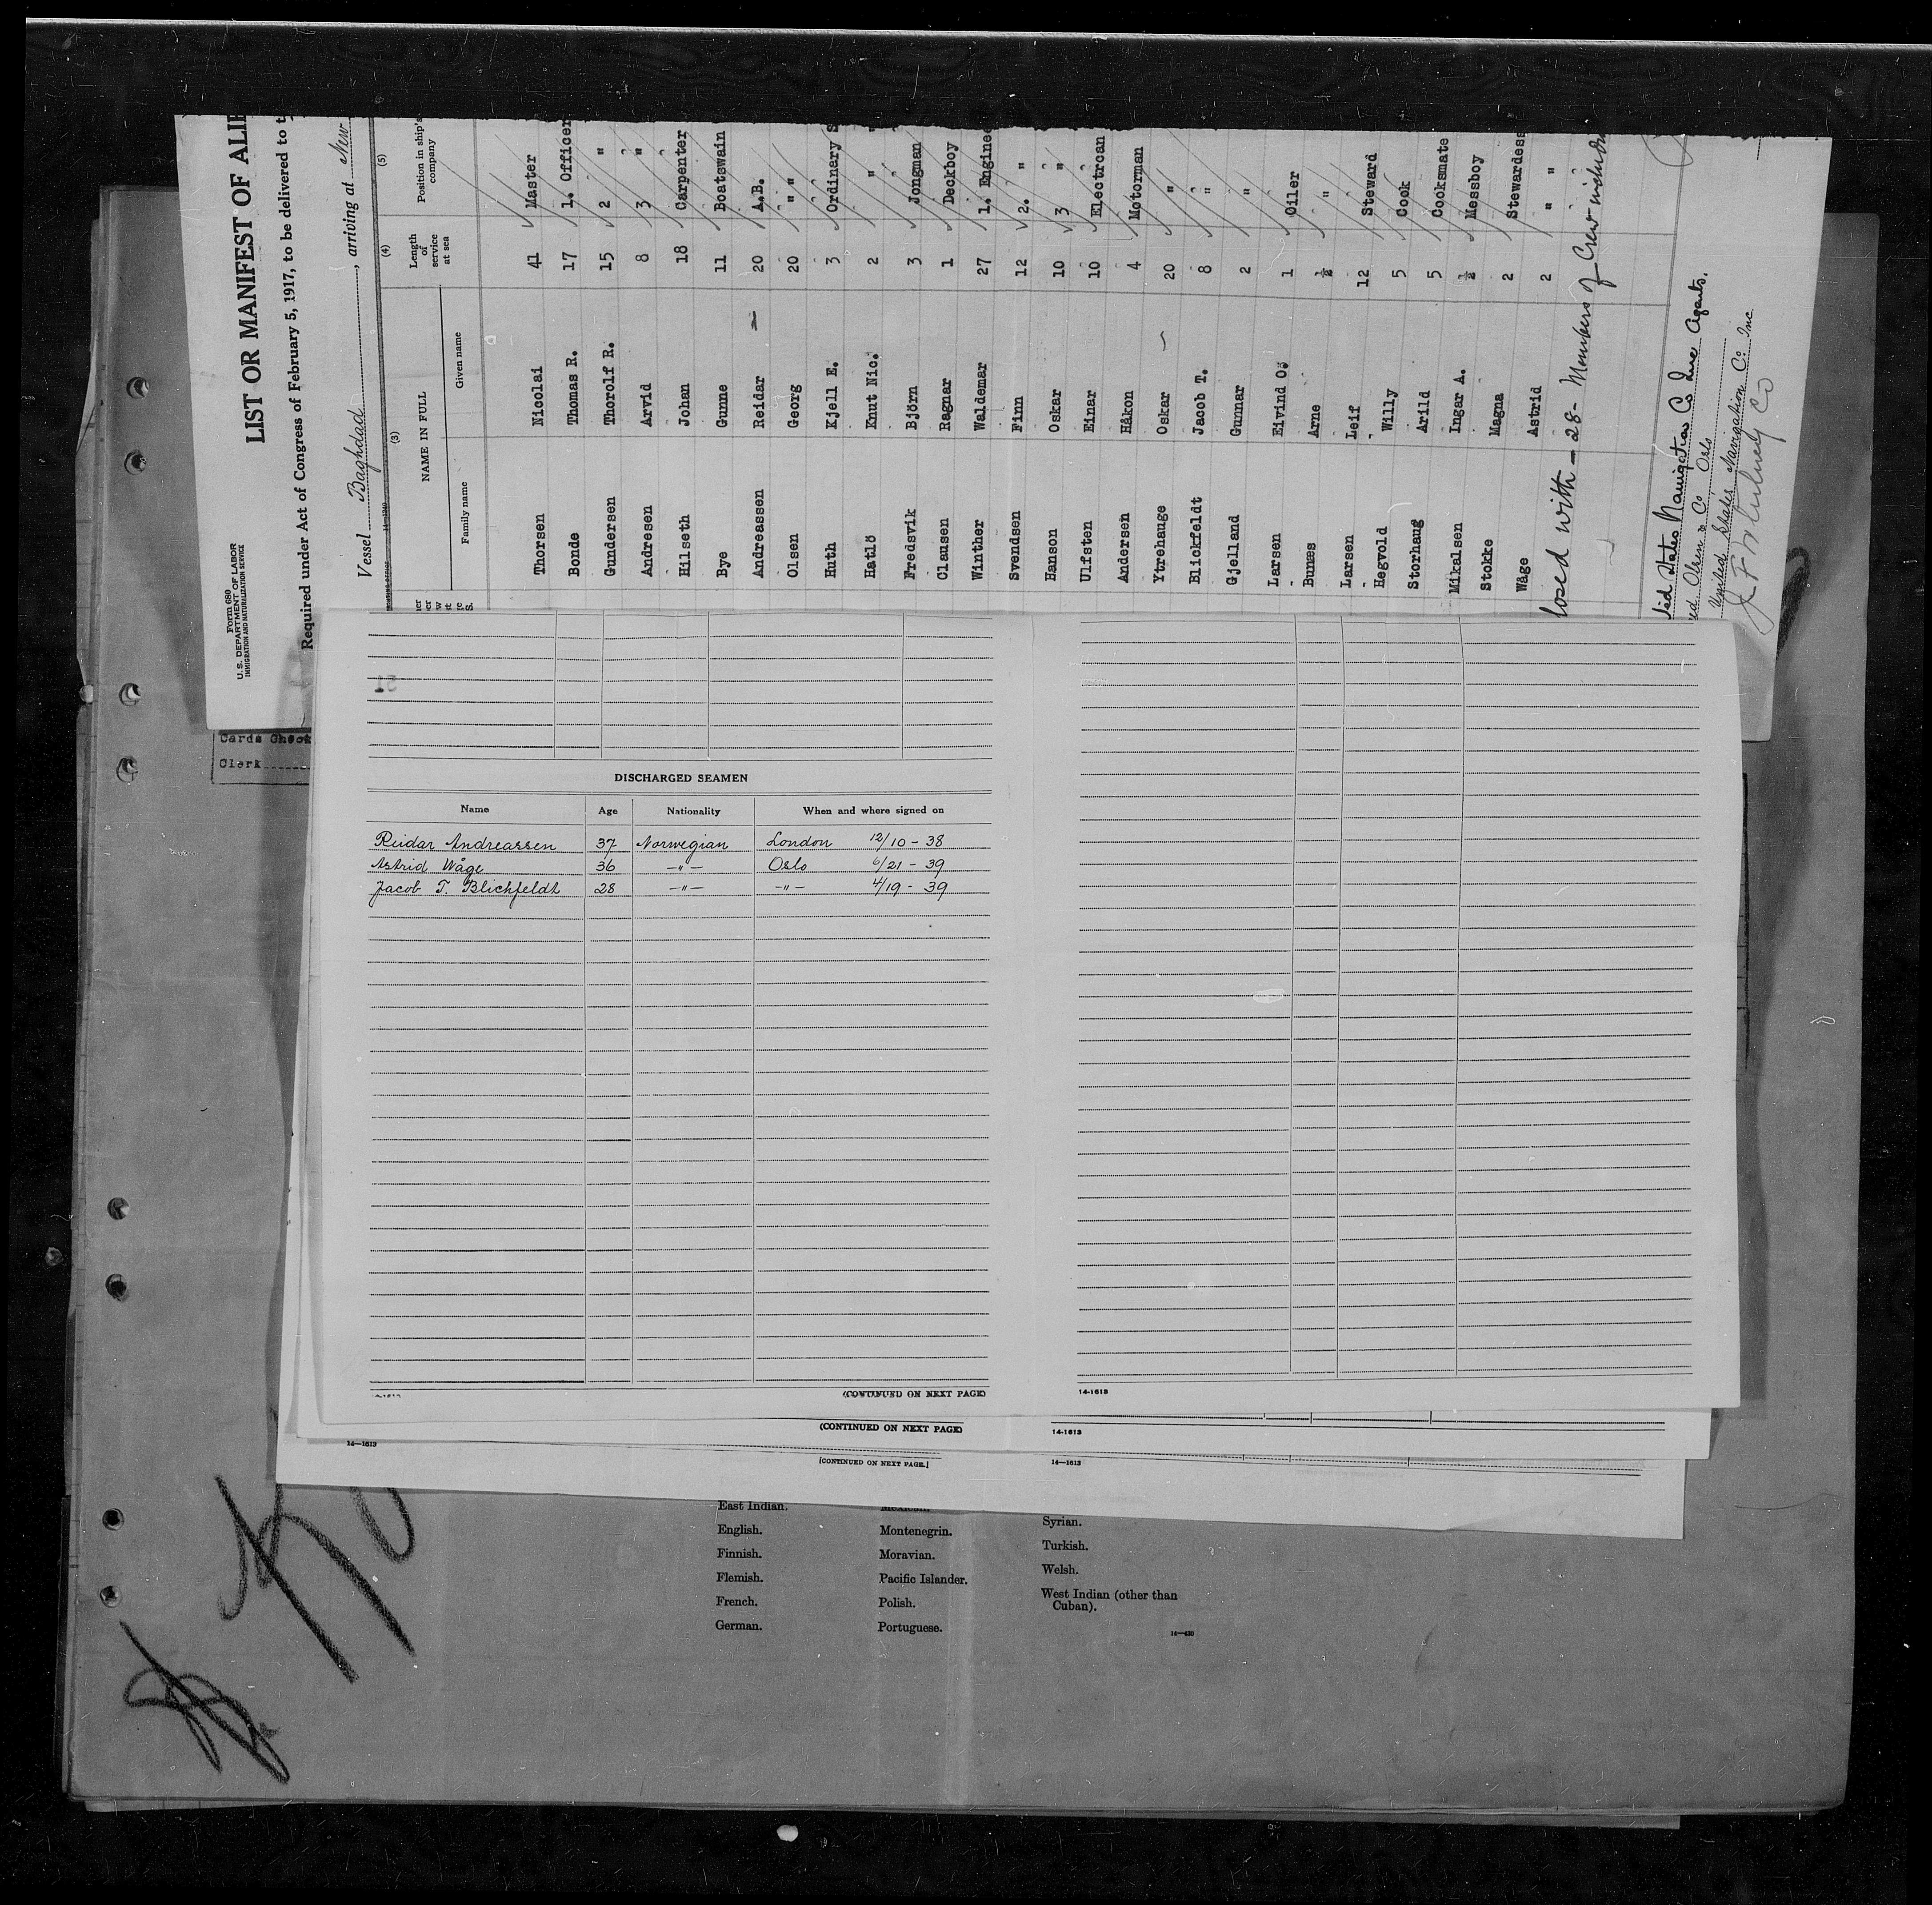 Form 680
U. S. DEPARTMENT OF LABOR
IMMIGRATION AND NATURALIZATION SERVICE
LIST OR MANIFEST OF
Required under Act of Congress of February 5, 1917, to be delivered to
Vessel Baghdad, arriving at New
(3) (4) (5)
NAME IN FULL
Family name Given name
Length of service at sea
Position in ship's company
Thorsen Nicolai 41 Master
Bonde Thomas R. 17 1. Officer
Gundersen Thorolf R. 15 2 "
Andresen Arvid 8 3 "
Hilseth Johan 18 Carpenter
Bye Gunne 11 Boatswain
Andreassen Reidar 20 A.B.
Olsen Georg 20 " "
Huth Kjell E. 3 Ordinary
Hatlö Knut Nic. 2 " "
Fredsvik Björn 3 Jongman
Clausen Ragnar 1 Deckboy
Winther Waldemar 27 1. Enginee
Svendsen Finn 12 2. "
Hanson Oskar 10 3 "
Ulfsten Einar 10 Electrcan
Andersen Håkon 4 Motorman
Ytrehauge Oskar 20 "
Blickfeldt Jacob T. 8 "
Gjelland Gunnar 2 "
Larsen Eivind O. 1 Oiler
Bunes Arne ½ "
Larsen Leif 12 Steward
Hegvold Willy 5 Cook
Storhaug Arild 5 Cooksmate
Mikalsen Ingar A. ½ Messboy
Stokke Magna 2 Stewardess
Wåge Astrid 2 " "
losed with - 28 - Members of Crew
ted States Navigation Co Inc Agents.
ed. Olsen & Co Oslo
United States Navigation Co Inc
Cards Check
Clerk
DISCHARGED SEAMEN
Name Age Nationality When and where signed on
Reidar Andreassen 37 Norwegian London 12/10 - 38
Astrid Wåge 36 -"- Oslo 6/21 - 39
Jacob T. Blichfeldt 28 -"- -"- 4/19 - 39
(CONTINUED ON NEXT PAGE)
14-1613
(CONTINUED ON NEXT PAGE)
14-1613
14—1613
[CONTINUED ON NEXT PAGE.]
14—1613
East Indian.
English.
Finnish.
Flemish.
French.
German.
Mexican.
Montenegrin.
Moravian.
Pacific Islander.
Polish.
Portuguese.
Syrian.
Turkish.
Welsh.
West Indian (other than
Cuban).
14—430